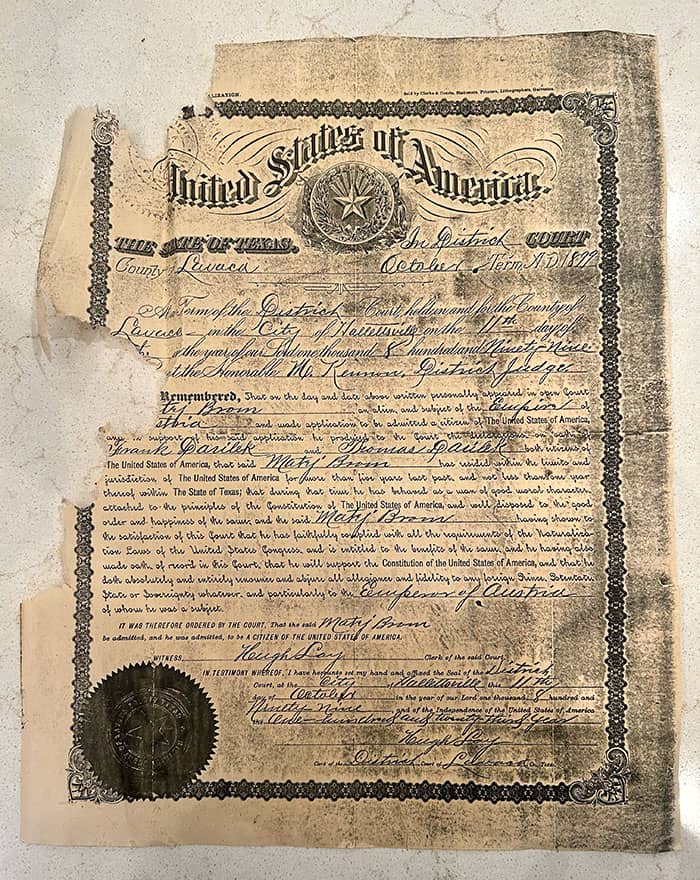 LIZATION.
Sold by Clarke & Courts, Stationers, Printers, Lithographers, Galveston.
United States of America.
THE STATE OF TEXAS, In District COURT
County Lavaca October Term, A.D. 1899
At a Term of the District Court, holden in and for the County of
Lavaca in the City of Hallettsville on the 11th day of
of the year of our Lord one thousand 8 hundred and Ninety Nine
the Honorable M. Kennon, District Judge
Remembered, That on the day and date above written personally appeared in open Court
Brom an alien, and subject of the Empire of
and made application to be admitted a citizen of The United States of America,
and in support of his said application he produced to the Court the declarations on oath of
Frank Darilek and Thomas Darilek both citizens of
The United States of America, that said Matij Brom has resided within the limits and
jurisdiction of The United States of America for more than five years last past, and not less than one year
thereof within The State of Texas; that during that time he has behaved as a man of good moral character,
attached to the principles of the Constitution of The United States of America, and well disposed to the good
order and happiness of the same; and the said Matij Brom having shown to
the satisfaction of this Court that he has faithfully complied with all the requirements of the Naturaliza-
tion Laws of the United States Congress, and is entitled to the benefits of the same, and he having also
made oath, of record in this Court, that he will support the Constitution of the United States of America, and that he
doth absolutely and entirely renounce and abjure all allegiance and fidelity to any foreign Prince, Potentate,
State or Sovereignty whatever, and particularly to the Emperor of Austria
of whom he was a subject.
IT WAS THEREFORE ORDERED BY THE COURT, That the said Matij Brom
be admitted, and he was admitted, to be A CITIZEN OF THE UNITED STATES OF AMERICA.
WITNESS Hugh Lay Clerk of the said Court
IN TESTIMONY WHEREOF, I have hereunto set my hand and affixed the Seal of the District
Court, at the City of Hallettsville this 11th
day of October in the year of our Lord one thousand 8 hundred and
Ninety Nine and of the Independence of the United States of America
the One hundred and twenty third Year
Hugh Lay
Clerk of the District Court of Lavaca Co., Texas.